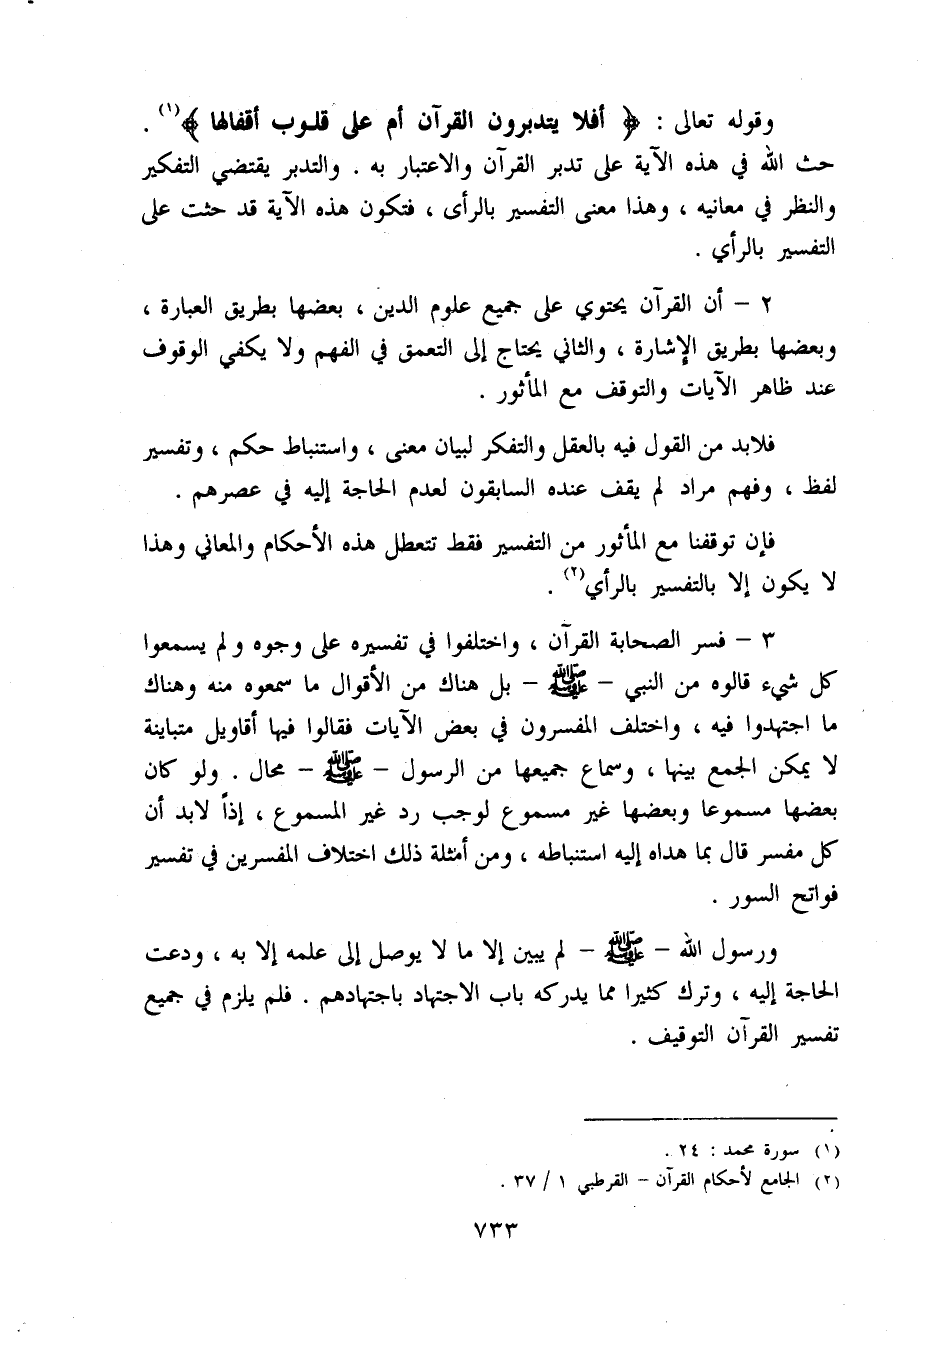 وقوله تعالى : ﴿ أفلا يتدبرون القرآن أم على قلـوب أقفالها ﴾(١) .
حث الله في هذه الآية على تدبر القرآن والاعتبار به . والتدبر يقتضي التفكير
والنظر في معانيه ، وهذا معنى التفسير بالرأى ، فتكون هذه الآية قد حثت على
التفسير بالرأي .
٢ – أن القرآن يحتوي على جميع علوم الدين ، بعضها بطريق العبارة ،
وبعضها بطريق الإشارة ، والثاني يحتاج إلى التعمق في الفهم ولا يكفي الوقوف
عند ظاهر الآيات والتوقف مع المأثور .
فلابد من القول فيه بالعقل والتفكر لبيان معنى ، واستنباط حكم ، وتفسير
لفظ ، وفهم مراد لم يقف عنده السابقون لعدم الحاجة إليه في عصرهم .
فإن توقفنا مع المأثور من التفسير فقط تتعطل هذه الأحكام والمعاني وهذا
لا يكون إلا بالتفسير بالرأي(٢) .
٣ – فسر الصحابة القرآن ، واختلفوا في تفسيره على وجوه ولم يسمعوا
كل شيء قالوه من النبي – ﷺ – بل هناك من الأقوال ما سمعوه منه وهناك
ما اجتهدوا فيه ، واختلف المفسرون في بعض الآيات فقالوا فيها أقاويل متباينة
لا يمكن الجمع بينها ، وسماع جميعها من الرسول – ﷺ – محال . ولو كان
بعضها مسموعا وبعضها غير مسموع لوجب رد غير المسموع ، إذاً لابد أن
كل مفسر قال بما هداه إليه استنباطه ، ومن أمثلة ذلك اختلاف المفسرين في تفسير
فواتح السور .
ورسول الله – ﷺ – لم يبين إلا ما لا يوصل إلى علمه إلا به ، ودعت
الحاجة إليه ، وترك كثيرا مما يدركه باب الاجتهاد باجتهادهم . فلم يلزم في جميع
تفسير القرآن التوقيف .
(١) سورة محمد : ٢٤ .
(٢) الجامع لأحكام القرآن – القرطبي ١ / ٣٧ .
٧٣٣